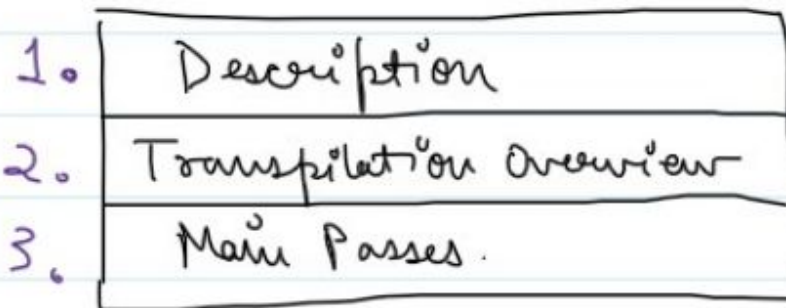 1. Description
2. Transpilation Overview
3. Main Passes.